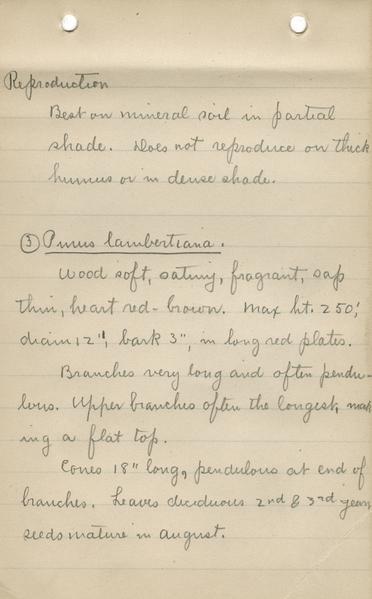 Reproduction
Best on mineral soil in partial
shade. Does not reproduce on thick
humus or in dense shade.
③ Pinus lambertiana.
Wood soft, satiny, fragrant, sap
thin, heart red-brown. Max ht. 250',
diam 12", bark 3", in long red plates.
Branches very long and often pendu-
lous. Upper branches often the longest, mak
ing a flat top.
Cones 18" long, pendulous at end of
branches. Leaves deciduous 2nd & 3rd year,
seeds mature in august.